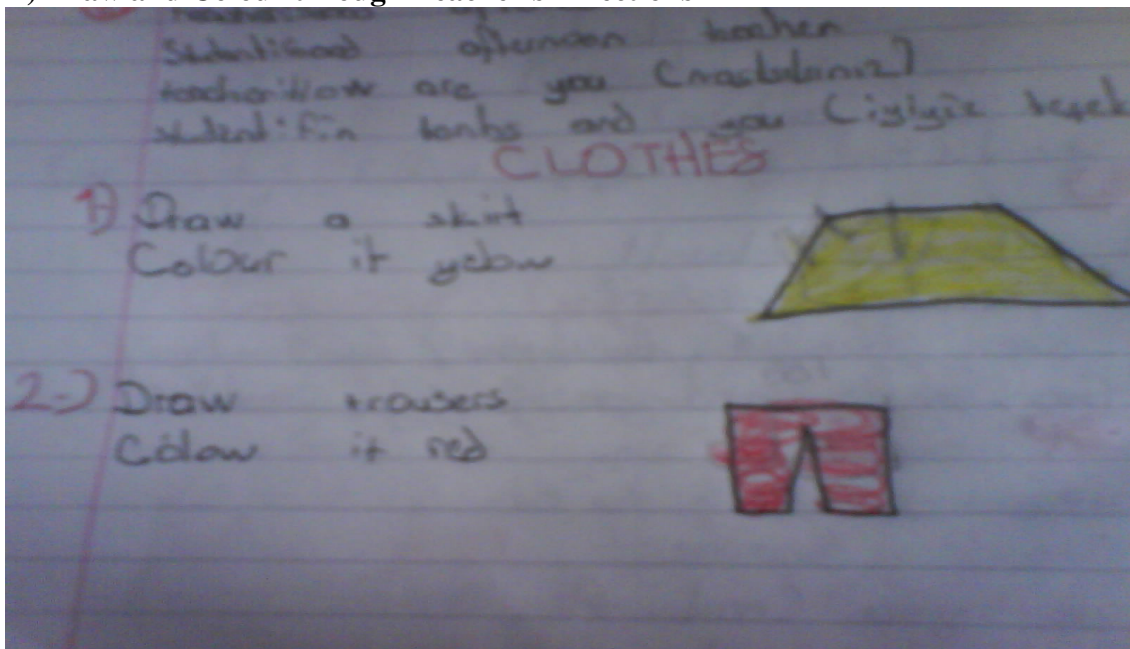 Student:Good afternoon teacher
teacher:How are you (nasılsınız)
student:Fin tanks and you (iyiyiz
CLOTHES
1) Draw a skirt
Colour it yelow
2-) Draw trousers
Colow it red